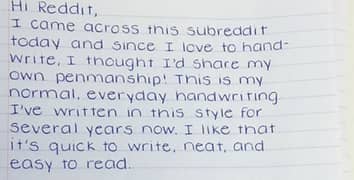 Hi Reddit,
I came across this subreddit
today and since I love to hand-
write, I thought I'd share my
own penmanship! This is my
normal, everyday handwriting.
I've written in this style for
several years now. I like that
it's quick to write, neat, and
easy to read.